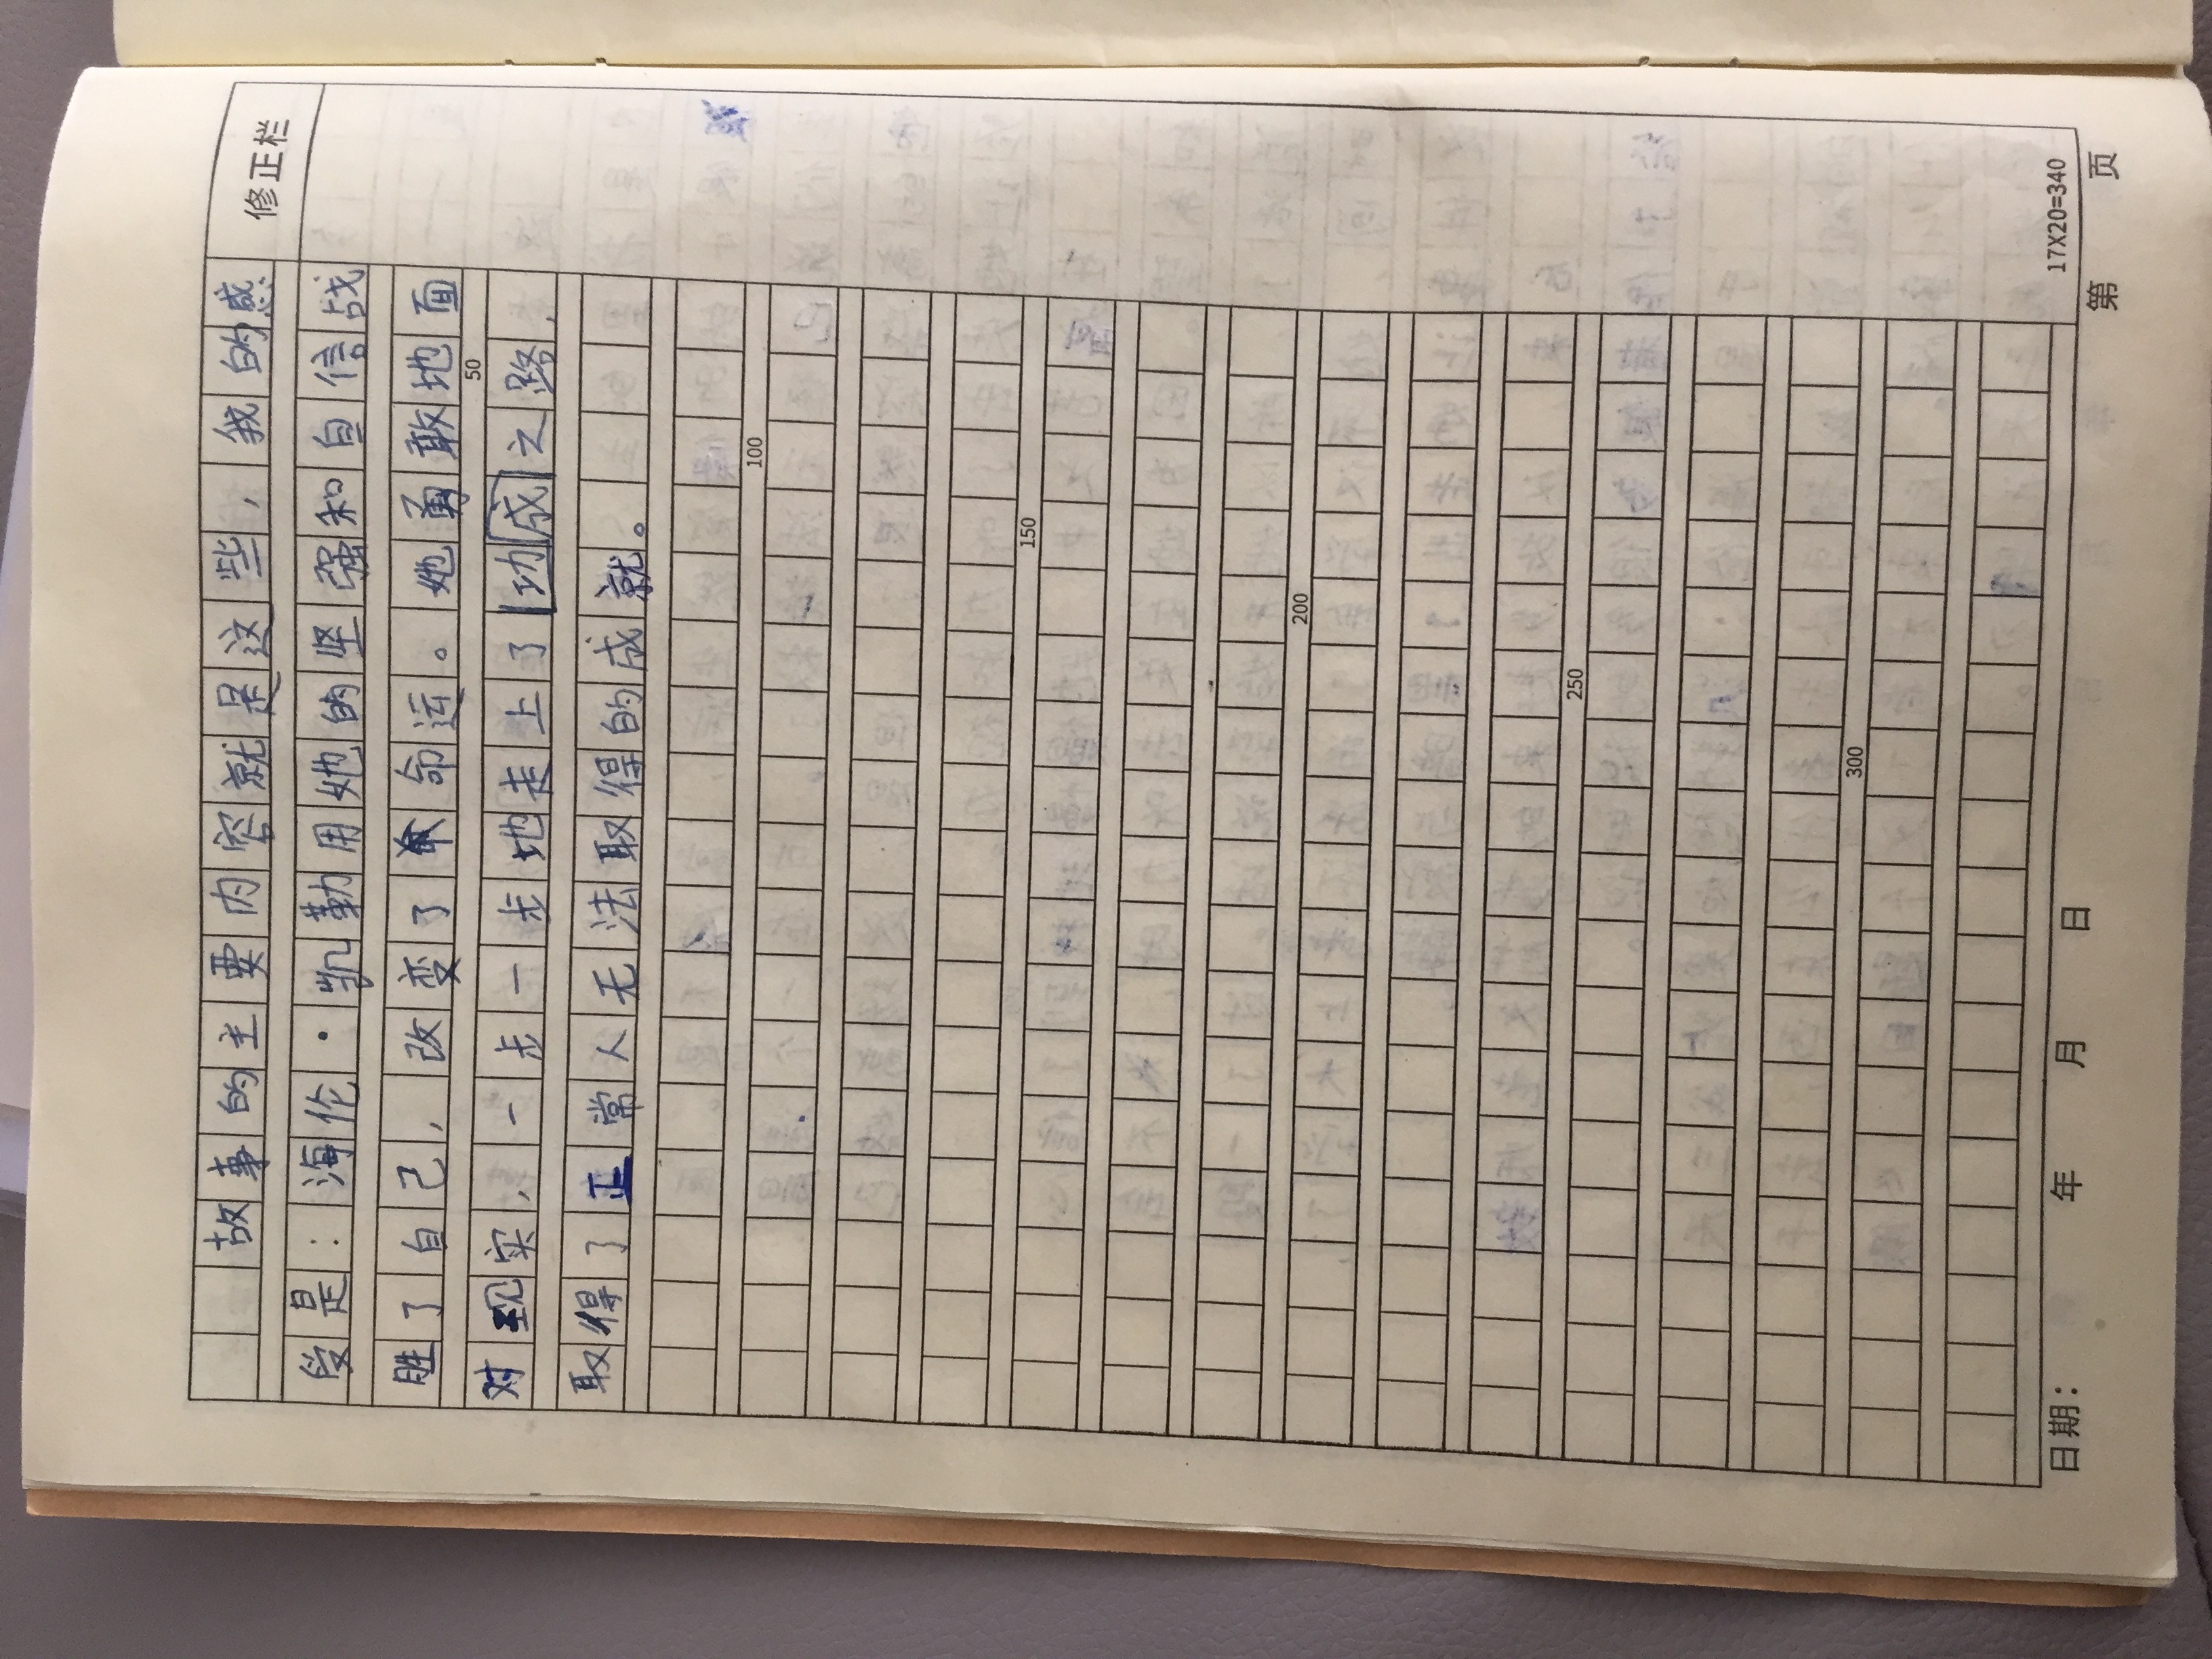 修正栏
故事的主要内容就是这些，我的感
受是：海伦·凯勒用她的坚强和自信战
胜了自己，改变了命运。她勇敢地面
50
对现实，一步一步地走上了功成之路，
取得了正常人无法取得的成就。
100
150
200
250
300
17X20=340
日期： 年 月 日 第 页